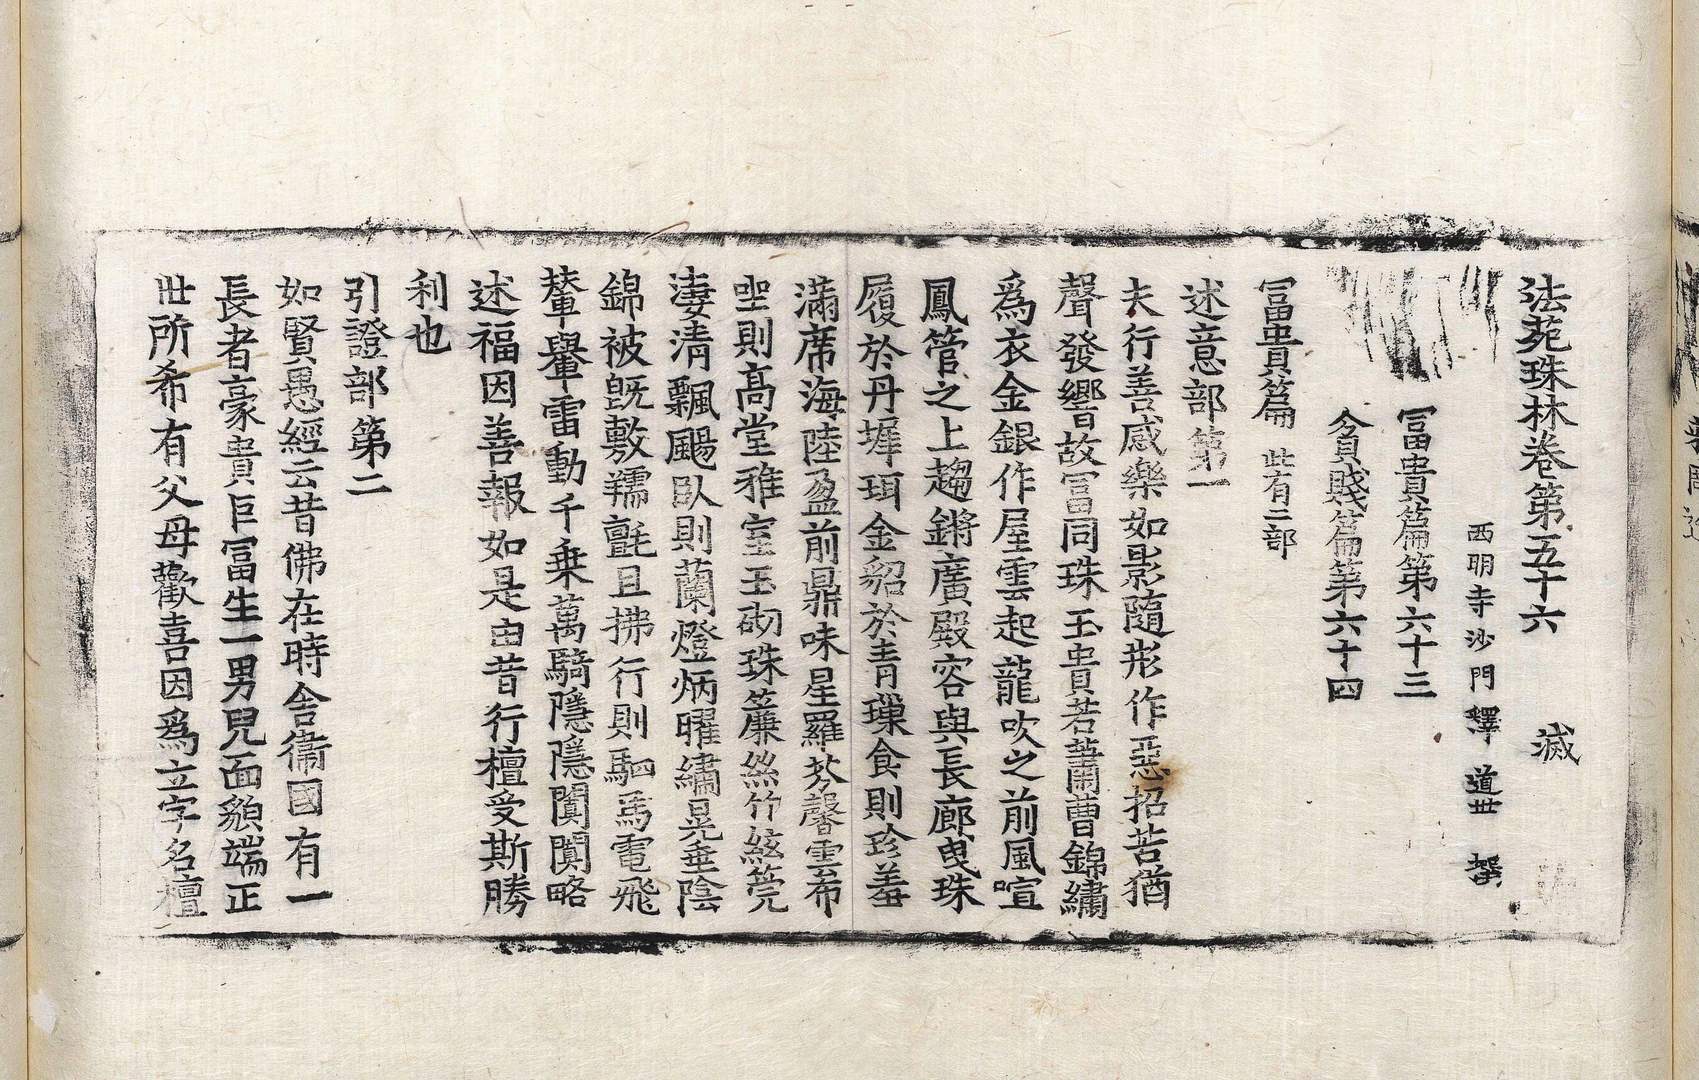 法苑珠林卷第五十六　滅
西明寺沙門釋　道世　撰
冨貴篇第六十三
貧賤篇第六十四
冨貴篇　此有二部
述意部第一
夫行善感樂如影隨形作惡招苦猶
聲發響故冨同珠玉貴若蕭曹錦繡
爲衣金銀作屋雲起龍吹之前風喧
鳳管之上趨鏘廣殿容與長廊曳珠
履於丹墀珥金貂於青璅食則珍羞
滿席海陸盈前鼎味星羅芬馨雲布
坐則高堂雅室玉砌珠簾絲竹絃筦
淒清飄颺臥則蘭燈炳曜繡晃垂陰
錦被既敷孺氈且拂行則駟馬電飛
輦轝雷動千乗萬騎隱隱闐闐略
述福因善報如是由昔行檀受斯勝
利也
引證部第二
如賢愚經云昔佛在時舍衛國有一
長者豪貴巨冨生一男兒面貌端正
世所希有父母歡喜因爲立字名檀